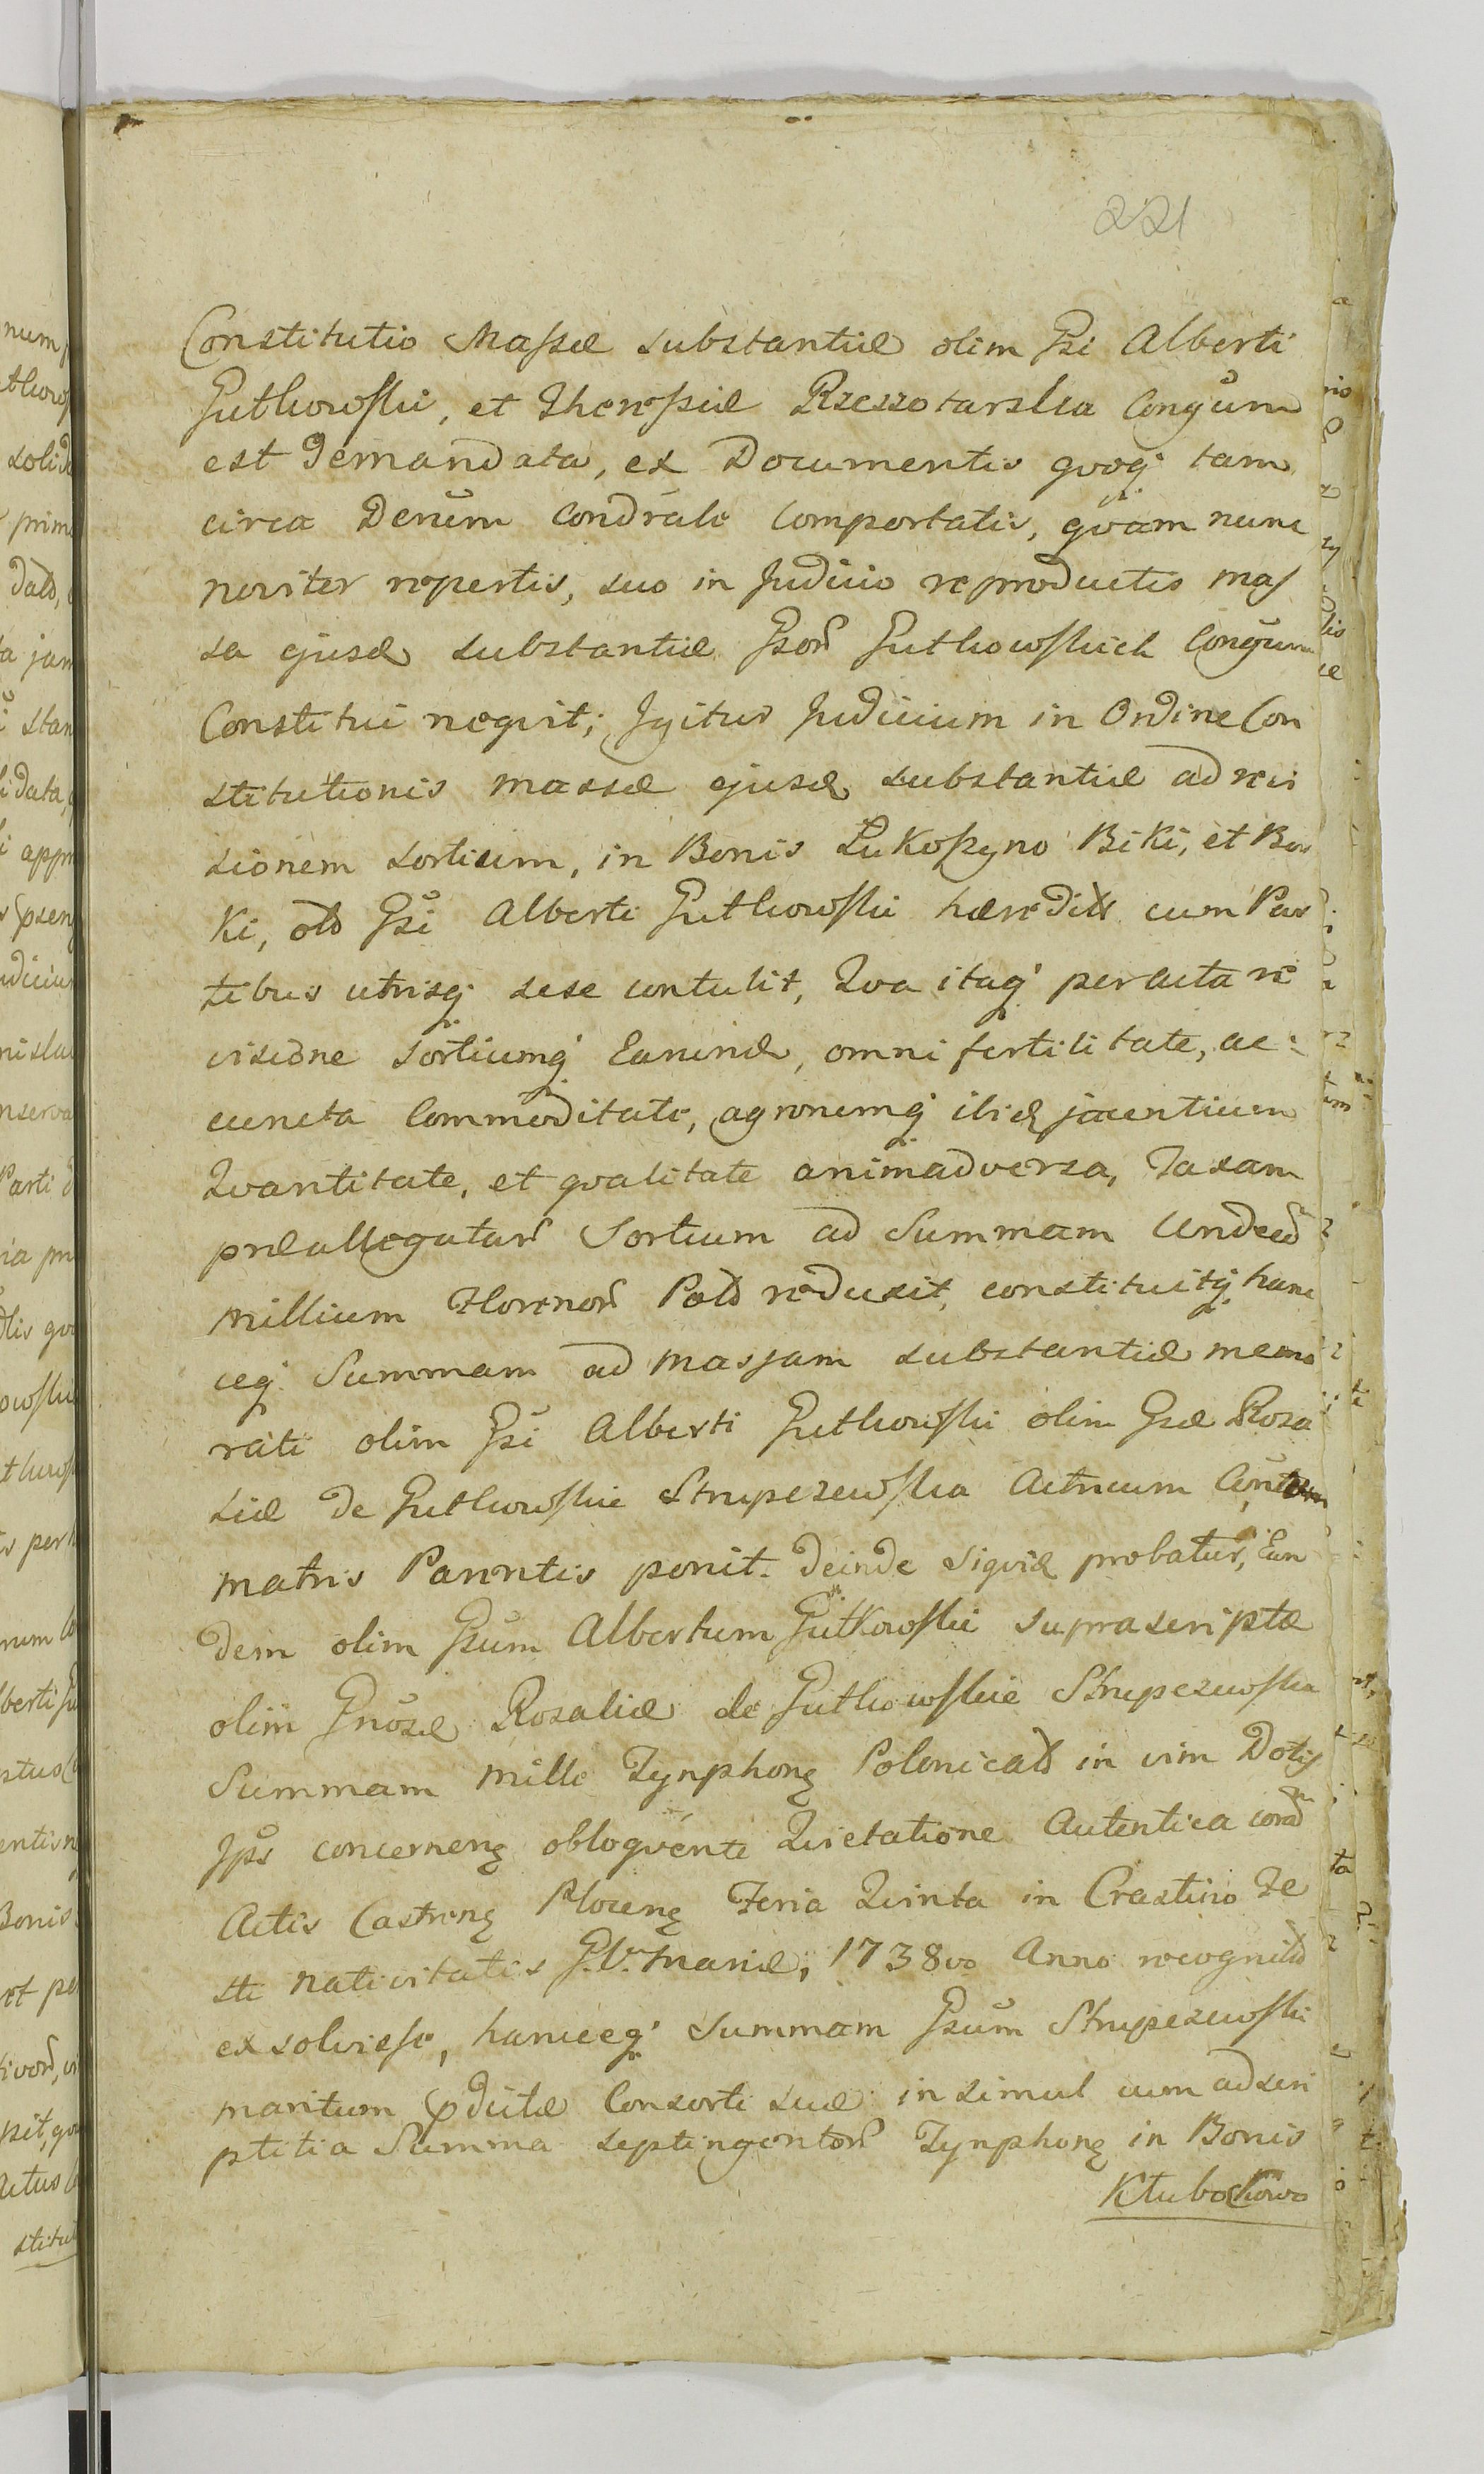 221
Constitutio Massæ substantiæ olim Gsi Alberti
Gutkowski, et Theressiæ Rzeszotarska Congūm
est demandata, ex Documentis qvoq; tam
circa Denūm Condrāle Comportatis, qvam nunc
noviter repertis, suo in Judicio reproductis mas
sa ejusd substantiæ Gsoru Gutkowskich Congūm
Constitui neqvit; Igitur Judicium in Ordine Con
stitutionis massæ ejusd substantiæ ad revi
sionem sortium, in Bonis Lukoszyno Biki, et Bor
ki, old Gsi Alberti Gutkowski hæredit cum Par
tibus utrisq; sese contulit, Qva itaq; peracta re
visione sortiumq; Earund, omni fertilitate, ac
cuncta Commoditate, agrorumq; ibid jacentium
Qvantitate, et qvalitate animadversa, Taxam
præallegataru Sortium ad Summam Undecī
millium Florenoru Pol reduxit, constituitq; hanc
ceq; Summam ad massam substantiæ memo
rati olim Gsi Alberti Gutkowski olim Gsæ Rosa
liæ de Gutkowskie Strupczewska Actorum
matris Parentis ponit. Deinde siqvid probatur, Eun
dem olim Gsūm Albertum Gutkowski suprascriptæ
olim Gnōsæ Rosaliæ de Gutkowskie Strupczewska
Summam mille Tynphong Polonical in vim Dotis
Ips concerneng obloqvente Qvietatione Autentica corā
Actis Castreng Ploceng Feria Qvinta in Crastino Fe
sti Nativitatis G.V. Mariæ, 1738vo Anno recognita
exsolvisse, hancceq; Summam Gsūm Strupczewski
maritum pdictæ Consorti suæ insimul cum adscri
ptitia Summa septingentoru Tynphong in Bonis
Kłubockowo